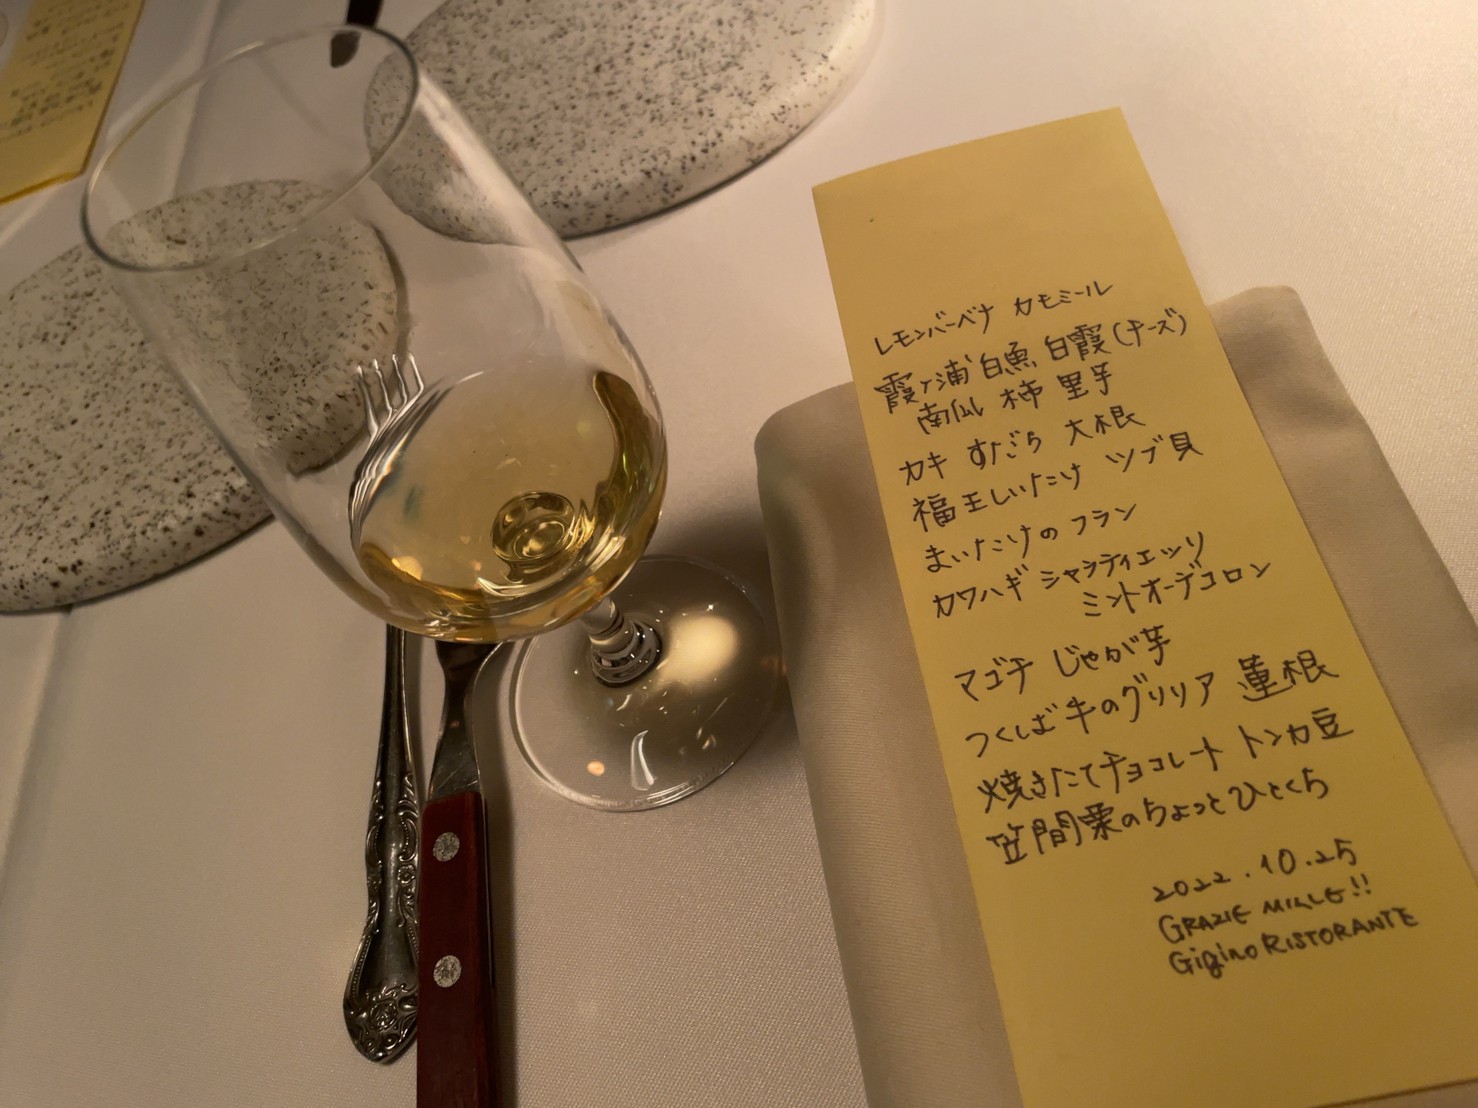 レモンバーベナ カモミール
霞ヶ浦白魚 白霞(チーズ)
南仙 柿 里芋
カキ すだち 大根
福王しいたけ ツブ貝
まいたけのフラン
カワハギ シャシティエッリ
ミントオーデコロン
マゴチ じゃが芋
つくしば牛のグリリア 蓮根
焼きたてチョコレート トンカ豆
笠間栗のちょっとひとくち
2022.10.25
GRAZIE MILLE!!
Gigino RISTORANTE